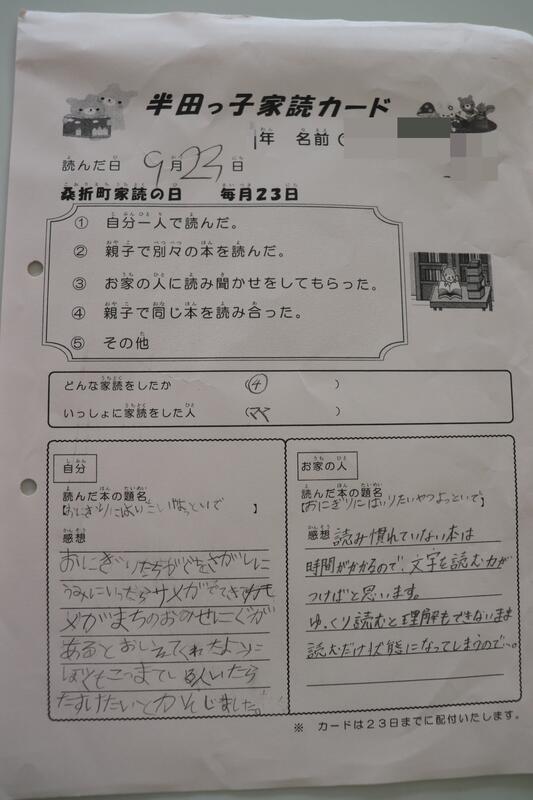 半田っ子家読カード
1年 名前(
読んだ日 9月23日
桑折町家読の日 毎月23日
① 自分一人で読んだ。
② 親子で別々の本を読んだ。
③ お家の人に読み聞かせをしてもらった。
④ 親子で同じ本を読み合った。
⑤ その他
どんな家読をしたか (④)
いっしょに家読をした人 (ママ)
自分
読んだ本の題名
【おにぎりにはいりたいやつよっといで】
感想
おにぎりたちがぐをさがしに
うみにいったらサメがでてきて
メがまちのおのせにぐが
あるとおしえてくれたように
ぼくもこまっている人いたら
たすけたいとかんじました。
お家の人
読んだ本の題名
【おにぎりにはいりたいやつよっといで】
感想 読み慣れていない本は
時間がかかるので、文字を読む力が
つけばと思います。
ゆっくり読むと理解もできないまま
読むだけ状態になってしまうので…。
※ カードは23日までに配付いたします。